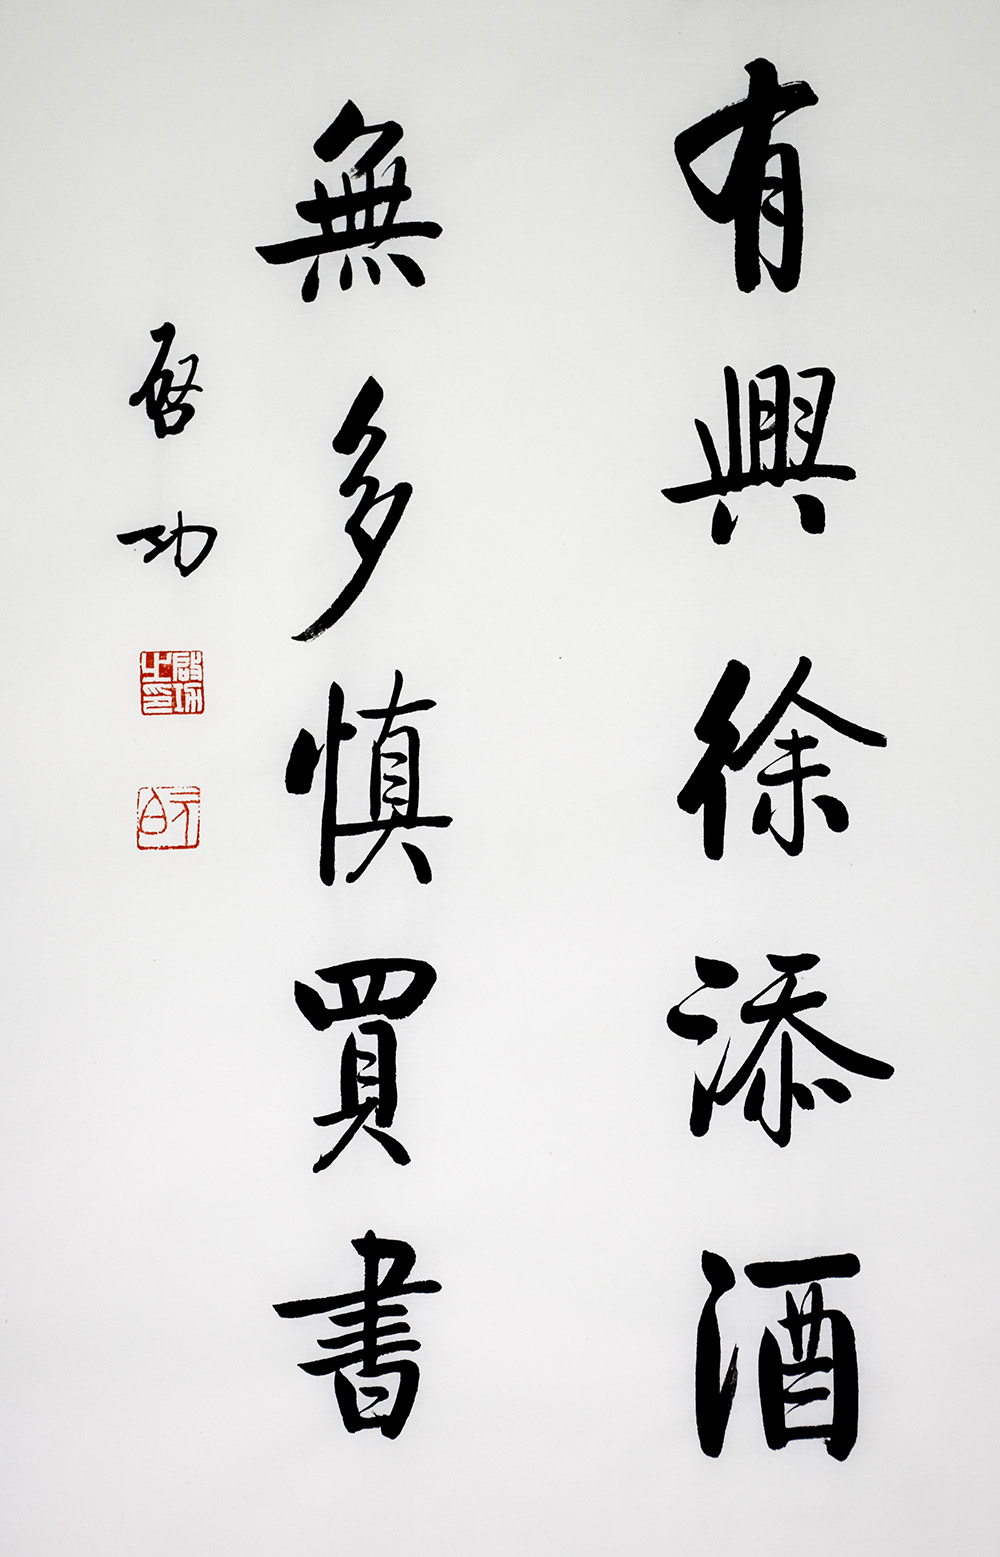 有興徐添酒
無多慎買書
啓功
啓功之印
元白